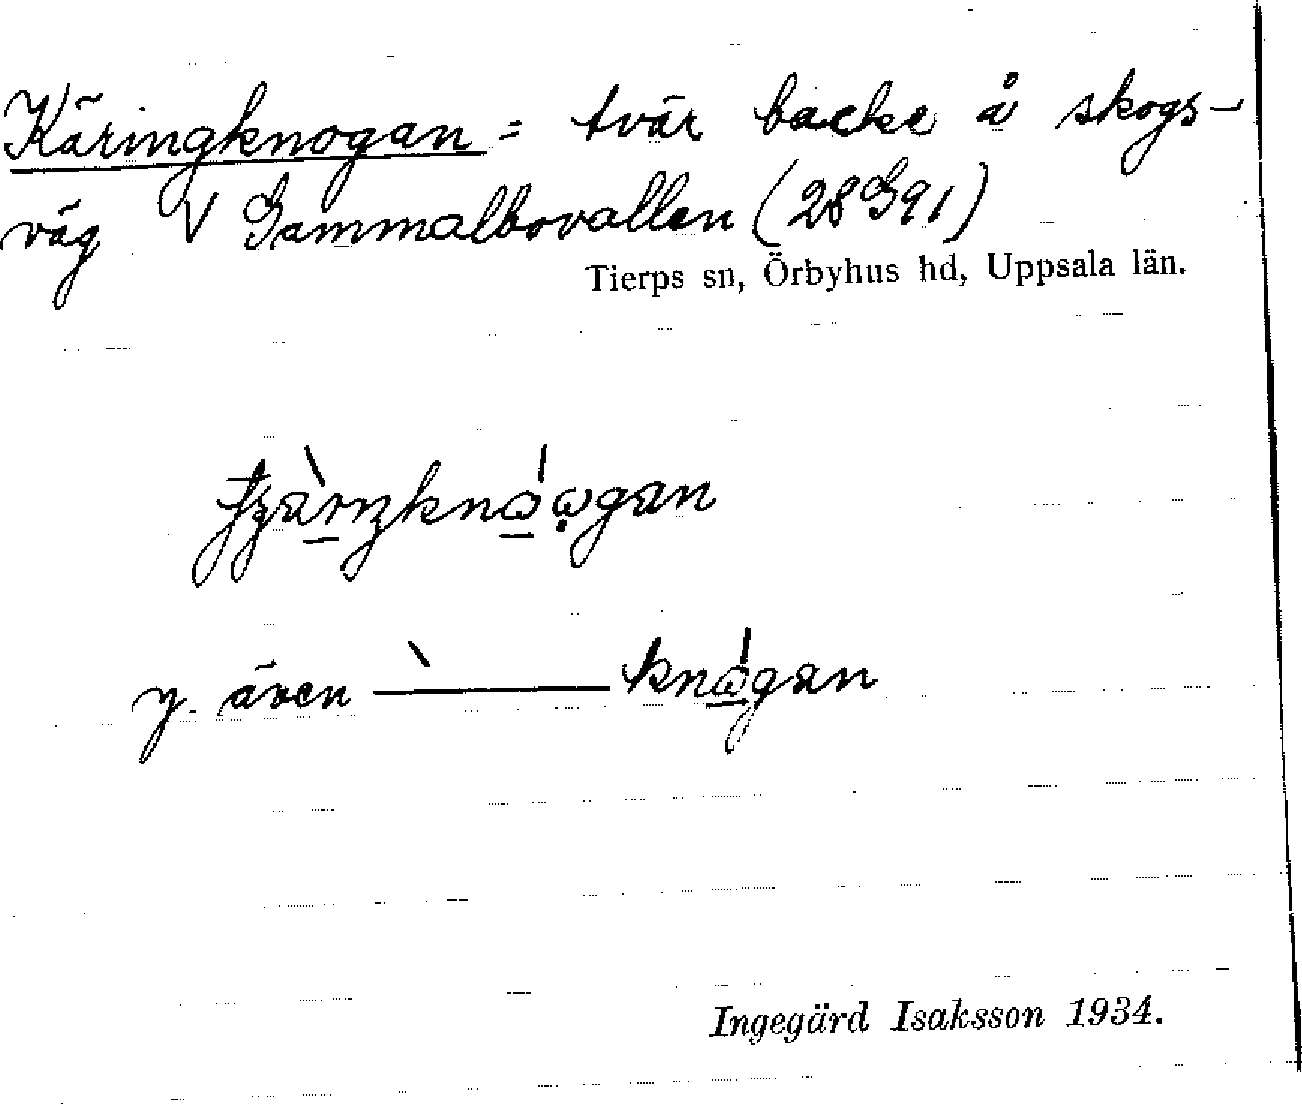 Käringknogan = tvär backe å skogs-
väg V Gammalbovallen (28G91)
Tierps sn, Örbyhus hd, Uppsala län.
y. även
Ingegärd Isaksson 1934.